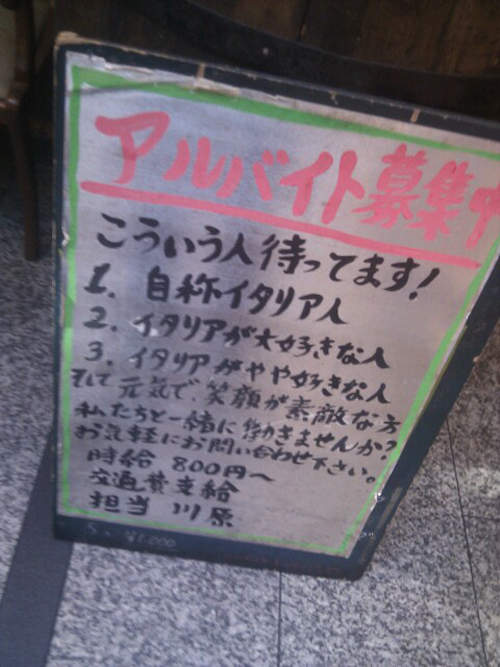 アルバイト募集中
こういう人待ってます!
1. 自称イタリア人
2. イタリアが大好きな人
3. イタリアがやや好きな人
そして元気で、笑顔が素敵な方
私たちと一緒に働きませんか?
お気軽にお問い合わせ下さい。
時給 800円〜
交通費支給
担当 川原
¥1,000